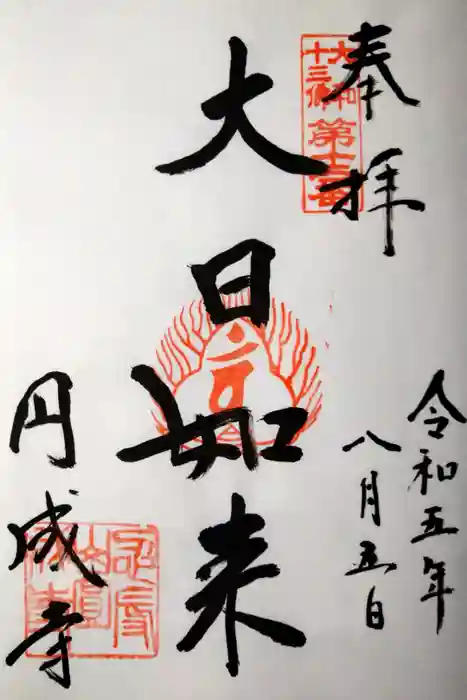 奉拝
大和
十三佛
第十二番
令和五年
八月五日
大日如来
円成寺